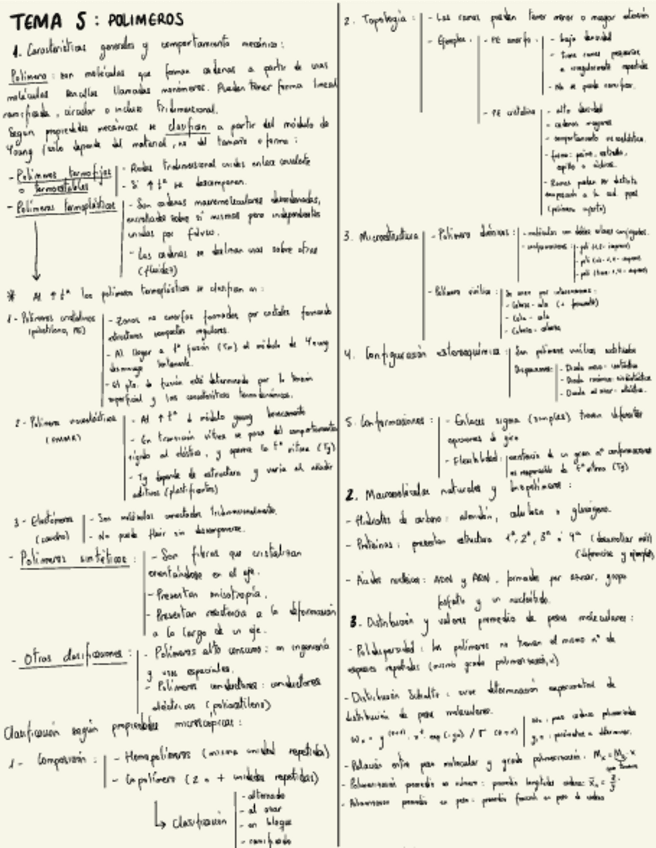 TEMA 5: POLIMEROS
1. Características generales y comportamiento mecánico:
Polímero: son moléculas que forman cadenas a partir de unas
moléculas sencillas llamadas monómeros. Pueden tener forma lineal
ramificada, circular o incluso tridimensional.
Según propiedades mecánicas se clasifican a partir del módulo de
Young (solo depende del material, no del tamaño o forma:
- Polímeros termofijos
o termoestables
- Redes tridimensional unidas enlace covalente
- Si ↑ tª se descomponen.
- Polímeros termoplásticos
- Son cadenas macromoleculares desordenadas,
enrolladas sobre sí mismas pero independientes
unidas por fuerzas.
- Las cadenas se deslizan unas sobre otras
(fluidez)
* Al ↑ tª los polímeros termoplásticos se clasifican en:
1- Polímeros cristalinos
(polietileno, PE)
- Zonas no amorfas formadas por cristales formando
estructuras compactas regulares.
- Al llegar a tª fusión (Tm) el módulo de Young
disminuye
- El pto. de fusión está determinado por la tensión
superficial y las características termodinámicas.
2- Polímero viscoelástico
- Al ↑ tª ↓ módulo young
- En transición vítrea se pasa del comportamiento
rígido al elástico, y aparece la tª vítrea (Tg)
- Tg depende de estructura y varía al añadir
aditivos (plastificantes)
3- Elastómeros
(caucho)
- Son moléculas conectadas tridimensionalmente.
- No puede fluir sin descomponerse.
- Polímeros sintéticos:
- Son fibras que cristalizan
orientándose en el eje.
- Presentan anisotropía.
- Presentan resistencia a la deformación
a lo largo de un eje.
- Otras clasificaciones:
- Polímeros alto consumo: en ingeniería
y usos especiales.
- Polímeros conductores: conductores
eléctricos (poliacetileno)
Clasificación según propiedades microscópicas:
1- Composición:
- Homopolímeros (misma unidad repetida)
- Copolímero (2 o + unidades repetidas)
↳ Clasificación
- alternado
- al azar
- en bloque
- ramificado
2. Topología:
- Las ramas pueden tener menor o mayor
- Ejemplos:
- PE amorfo:
- baja densidad
- tiene ramas pequeñas
e irregularmente repartidas
- No se puede cristalizar.
- PE cristalino
- alta densidad
- cadenas mayores
- comportamiento
- forma: peine, estrella,
- Ramas pueden ser distinta
3. Microestructura
- Polímero diénicos:
- moléculas con dobles enlaces conjugados.
- Polímero vinílico:
- Cabeza - cola (+ frecuente)
- Cola - cola
- Cabeza - cabeza
4. Configuración estereoquímica:
Son polímeros vinílicos
5. Conformaciones:
- Enlaces sigma (simples) tienen diferentes
opciones de giro
- Flexibilidad:
es responsable de tª vítrea (Tg)
2. Macromoléculas naturales y biopolímeros:
- Hidratos de carbono: almidón, celulosa o glucógeno.
- Proteínas: presentan estructura 1ª, 2ª, 3ª o 4ª (desarrollar
- Ácidos nucleicos: ADN y ARN, formados por azúcar, grupo
fosfato y un nucleótido.
3. Distribución y valores promedio de pesos moleculares:
- Polidispersidad: los polímeros no tienen el mismo nº de
especies repetidas (mismo grado polimerización)
- Distribución Schultz: sirve determinación experimental de
distribución de pesos moleculares.
- Relación entre peso molecular y grado polimerización:
- Polimerización promedio en número: promedio longitudes cadena:
- Polimerización promedio en peso: promedio fracción en peso de cadena